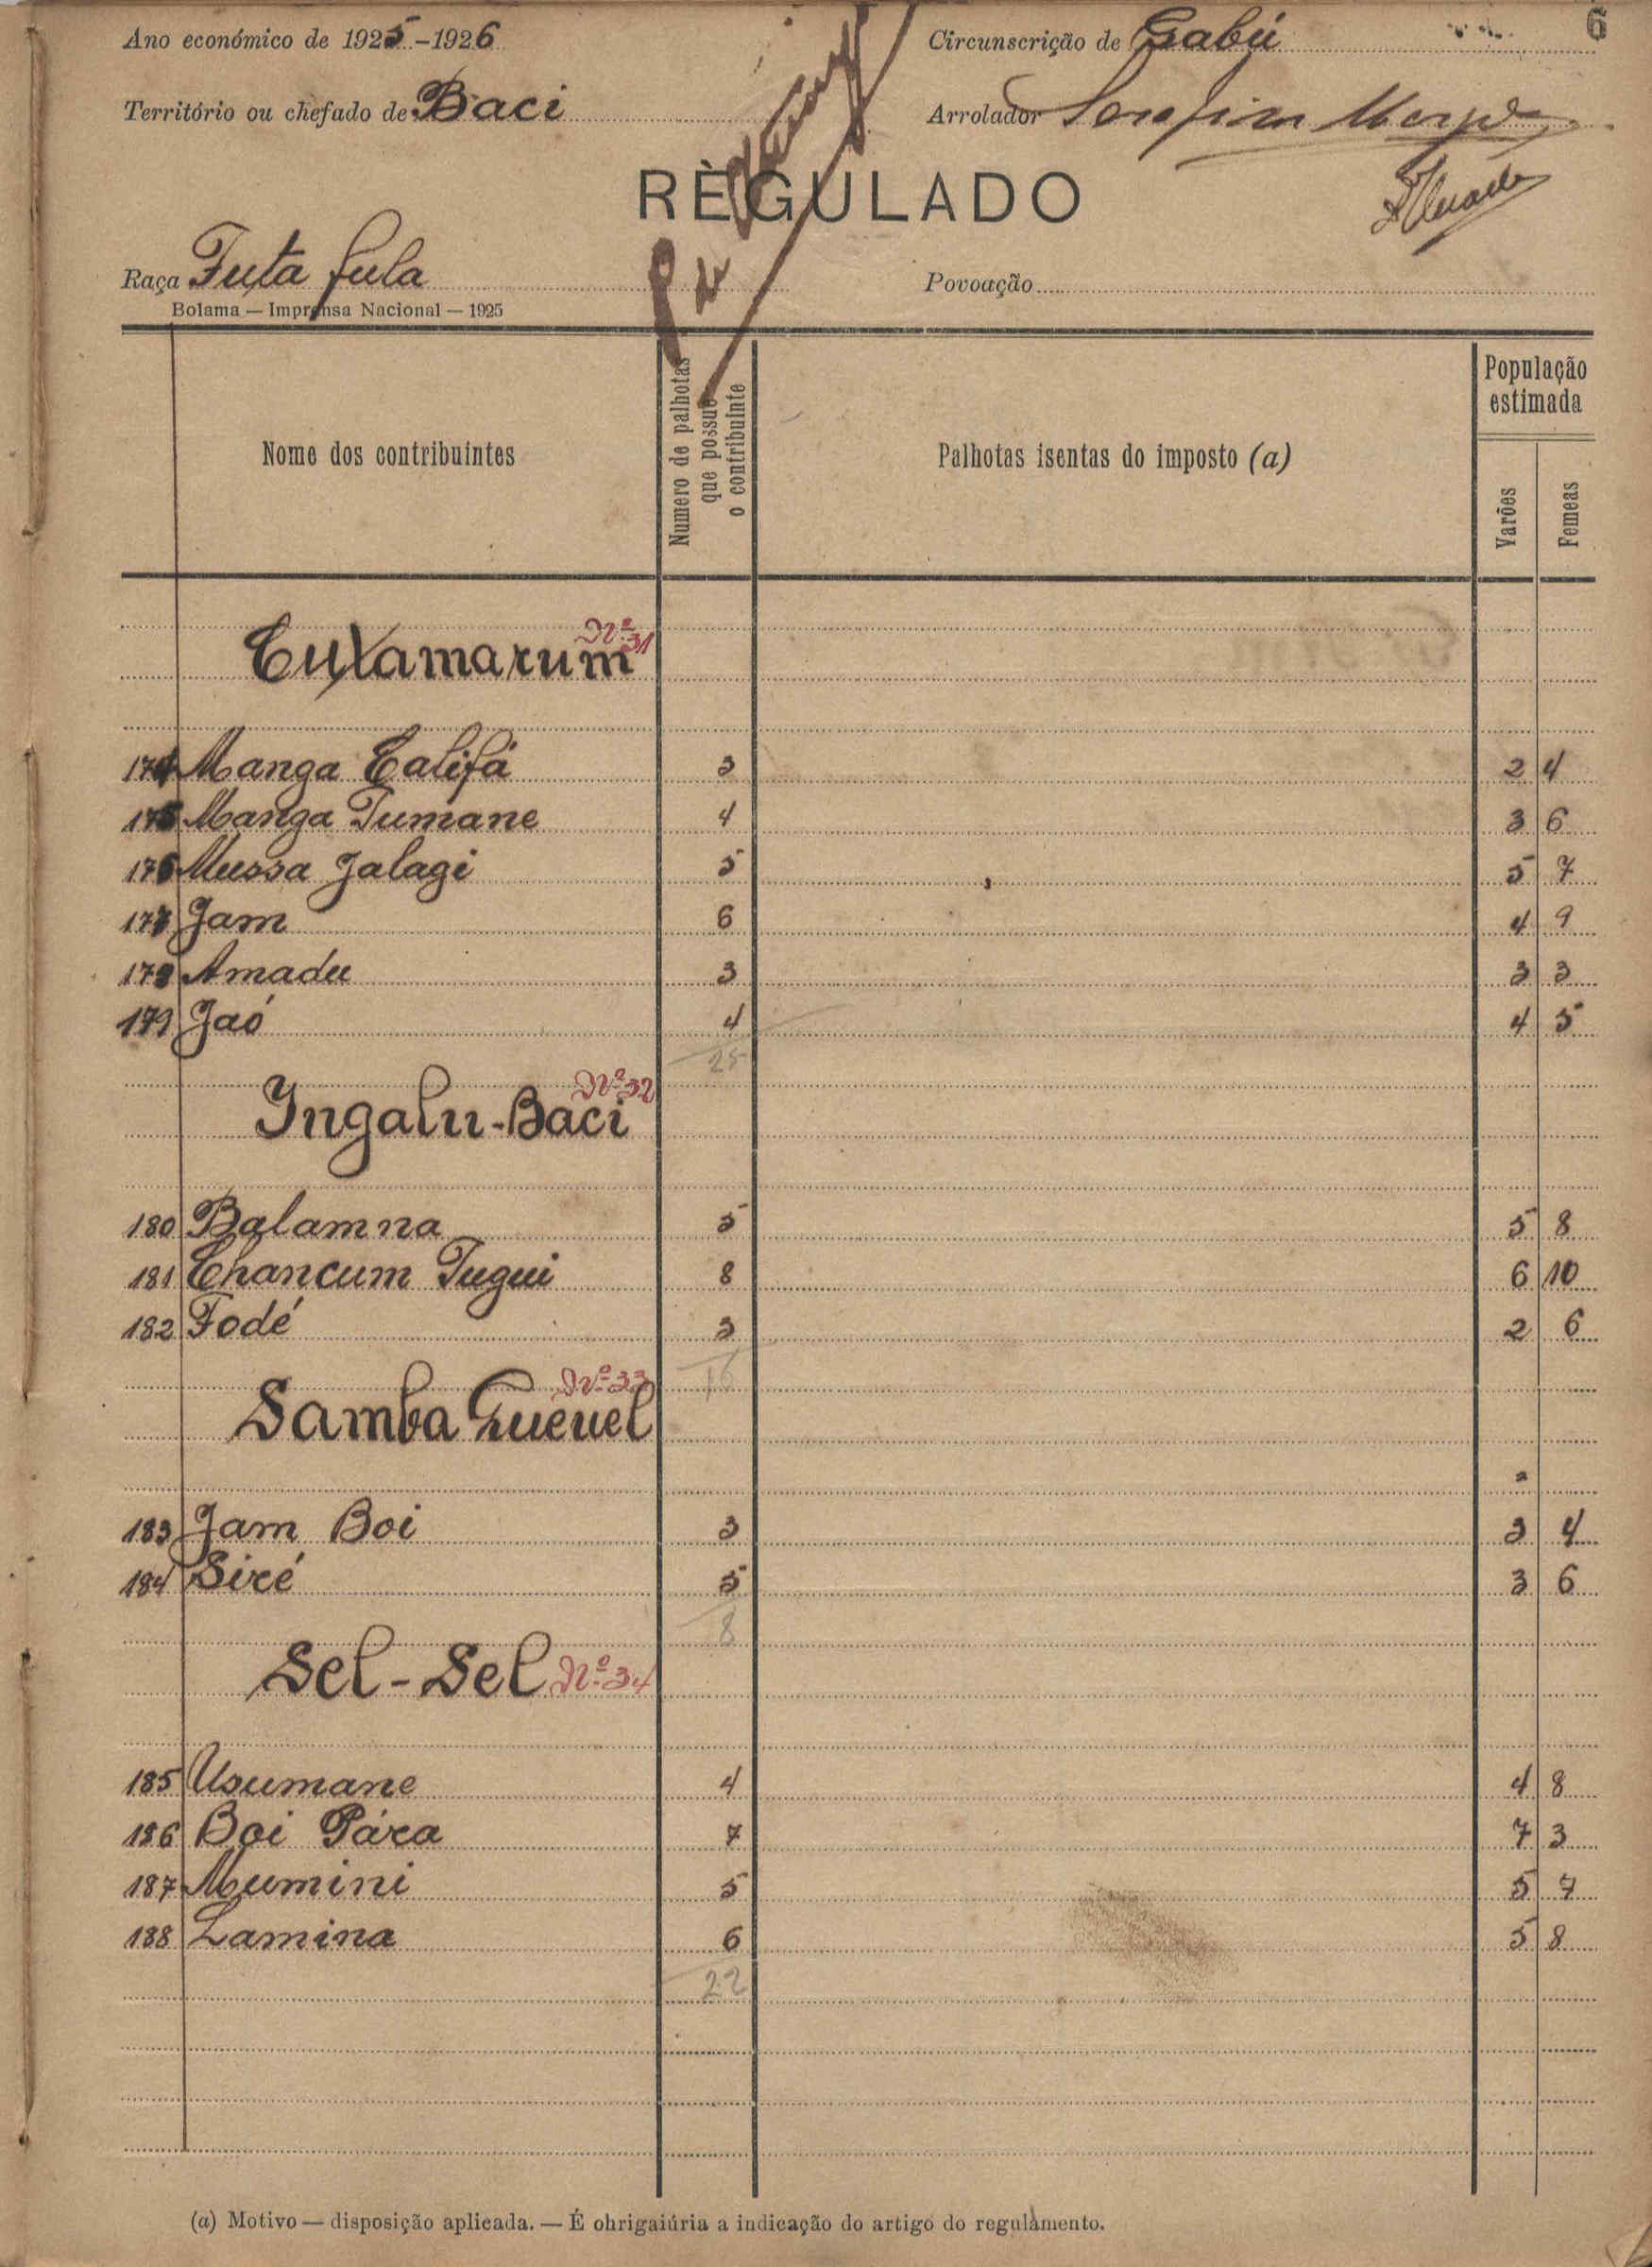 6
Ano económico de 1925-1926
Circunscrição de Gabú
Território ou chefado de Baci
Arrolador Serafim
RÈGULADO
Raça Futa fula
Povoação
Bolama — Imprensa Nacional — 1925
Nome dos contribuintes
Numero de palhotas que possue o contribuinte
Palhotas isentas do imposto (a)
População estimada
Varões
Femeas
Cuxamarum Nº 31
174 Manga Califá 3 2 4
175 Manga Tumane 4 3 6
176 Mussa Jalagi 5 5 7
177 Jam 6 4 9
178 Amadu 3 3 3
179 Jaó 4 4 5
25
Ingalu-Baci Nº 32
180 Balamna 5 5 8
181 Chancum Tugui 8 6 10
182 Fodé 3 2 6
16
Samba Gueuel Nº 33
183 Jam Boi 3 3 4
184 Siré 5 3 6
8
Sel-Sel Nº 34
185 Usumane 4 4 8
186 Boi Pára 7 7 3
187 Mumini 5 5 7
188 Lamina 6 5 8
22
(a) Motivo — disposição aplicada. — É ohrigaiúria a indicação do artigo do regulamento.